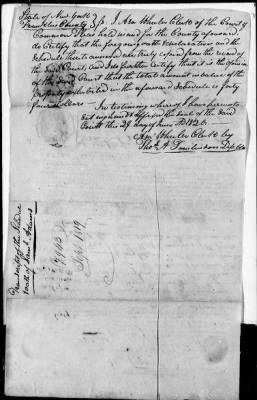 State of New York
Franklin County } Ss. I Asa Wheeler Clerk of the Court of
Common Pleas held in and for the County aforesaid
do Certify that the foregoing oath declaration and the
Schedule thereto annexed are truly copied from the record of
the said Court, and I do further Certify that it is the opinion
of the said Court that the total amount in value of the
property exhibited in the aforesaid Schedule is forty
four dollars — In testimony whereof I have hereunto
set my hand & affixed the Seal of the said
Court this 29 day of June AD 1820.
Asa Wheeler Clerk by
Thos. A. Tomlinson Dep Clk
Transcript of the Schedule
& oath of
Sept. 1819